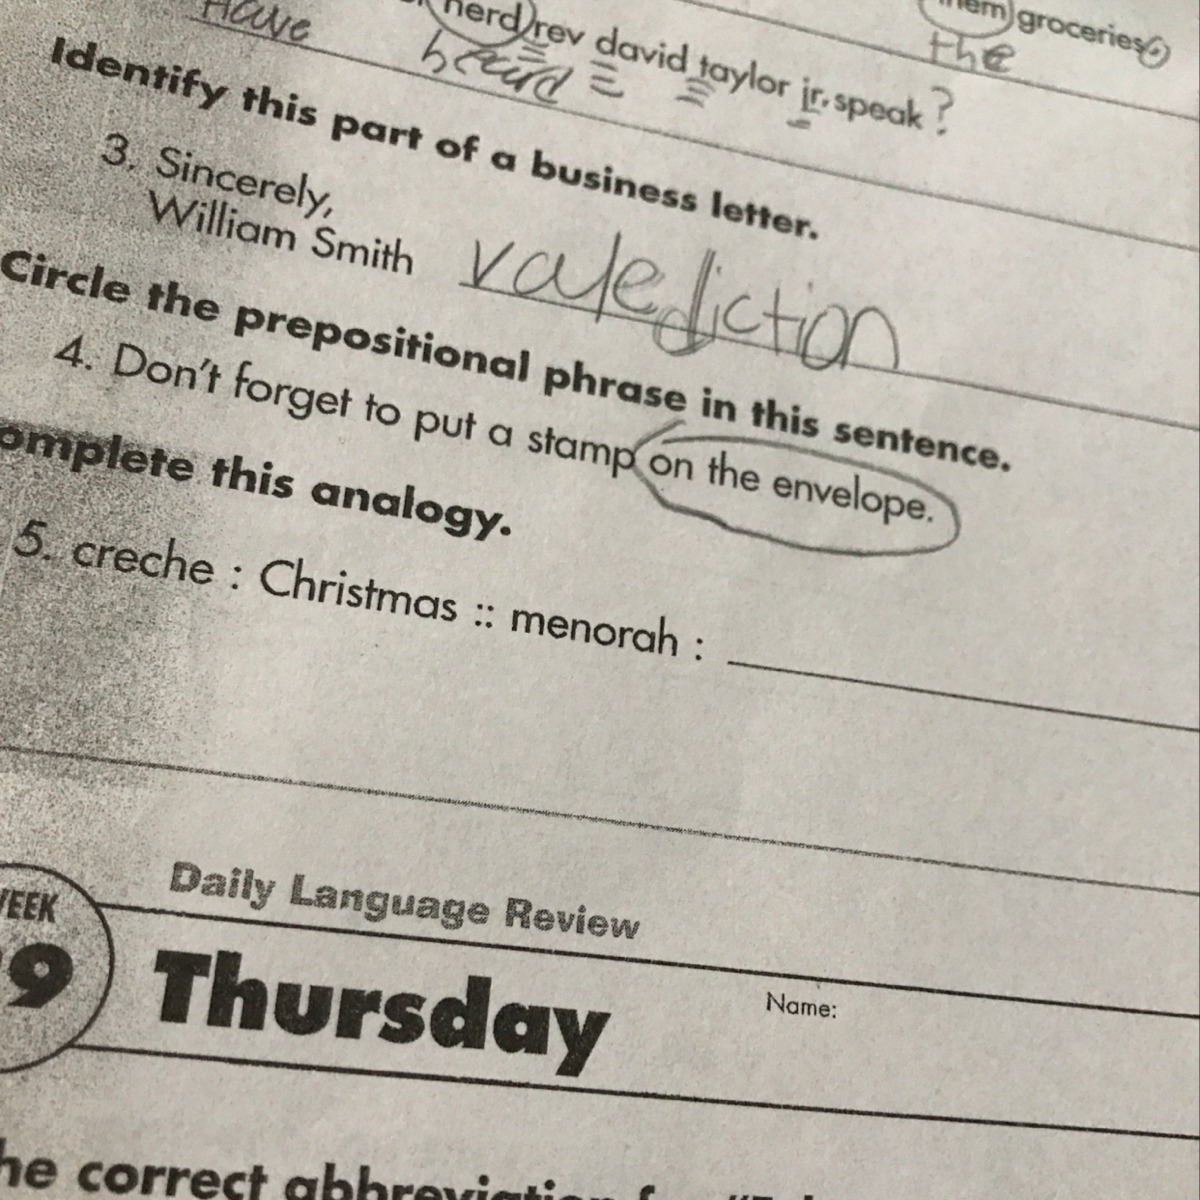 groceries
the
rev david taylor jr. speak ?
Have heard
Identify this part of a business letter.
3. Sincerely,
William Smith valediction
Circle the prepositional phrase in this sentence.
4. Don't forget to put a stamp on the envelope.
omplete this analogy.
5. creche : Christmas :: menorah :
Daily Language Review
WEEK
9 Thursday
Name:
he correct abbreviation